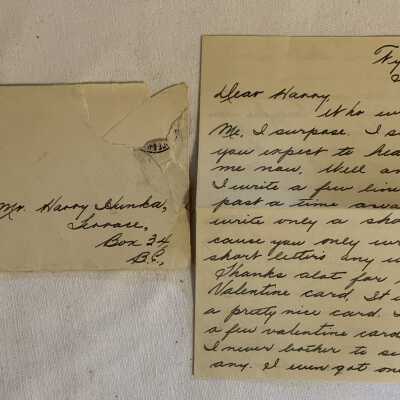 Mr. Harry Hunka,
Terrace,
Box 34
B.C.,
Dear Harry,
Who
Me, I surpose. I
you expect to
me now, Well
I write a few
past a time
write only a
cause you only
short letters any
Thanks alot for
Valentine card. It
a pretty nice card.
a few valentine
I never bother to
any. I even got one